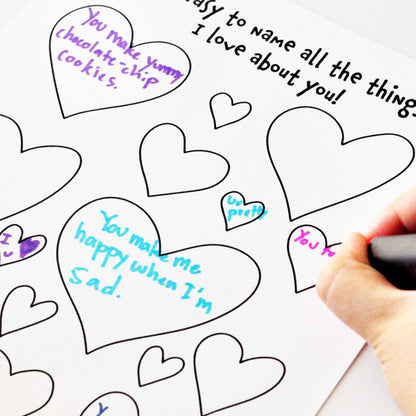 easy to name all the things
I love about you!
You make yummy
chocolate-chip
cookies.
ur
pretty
I
u
You make me
happy when I'm
sad.
You
Y